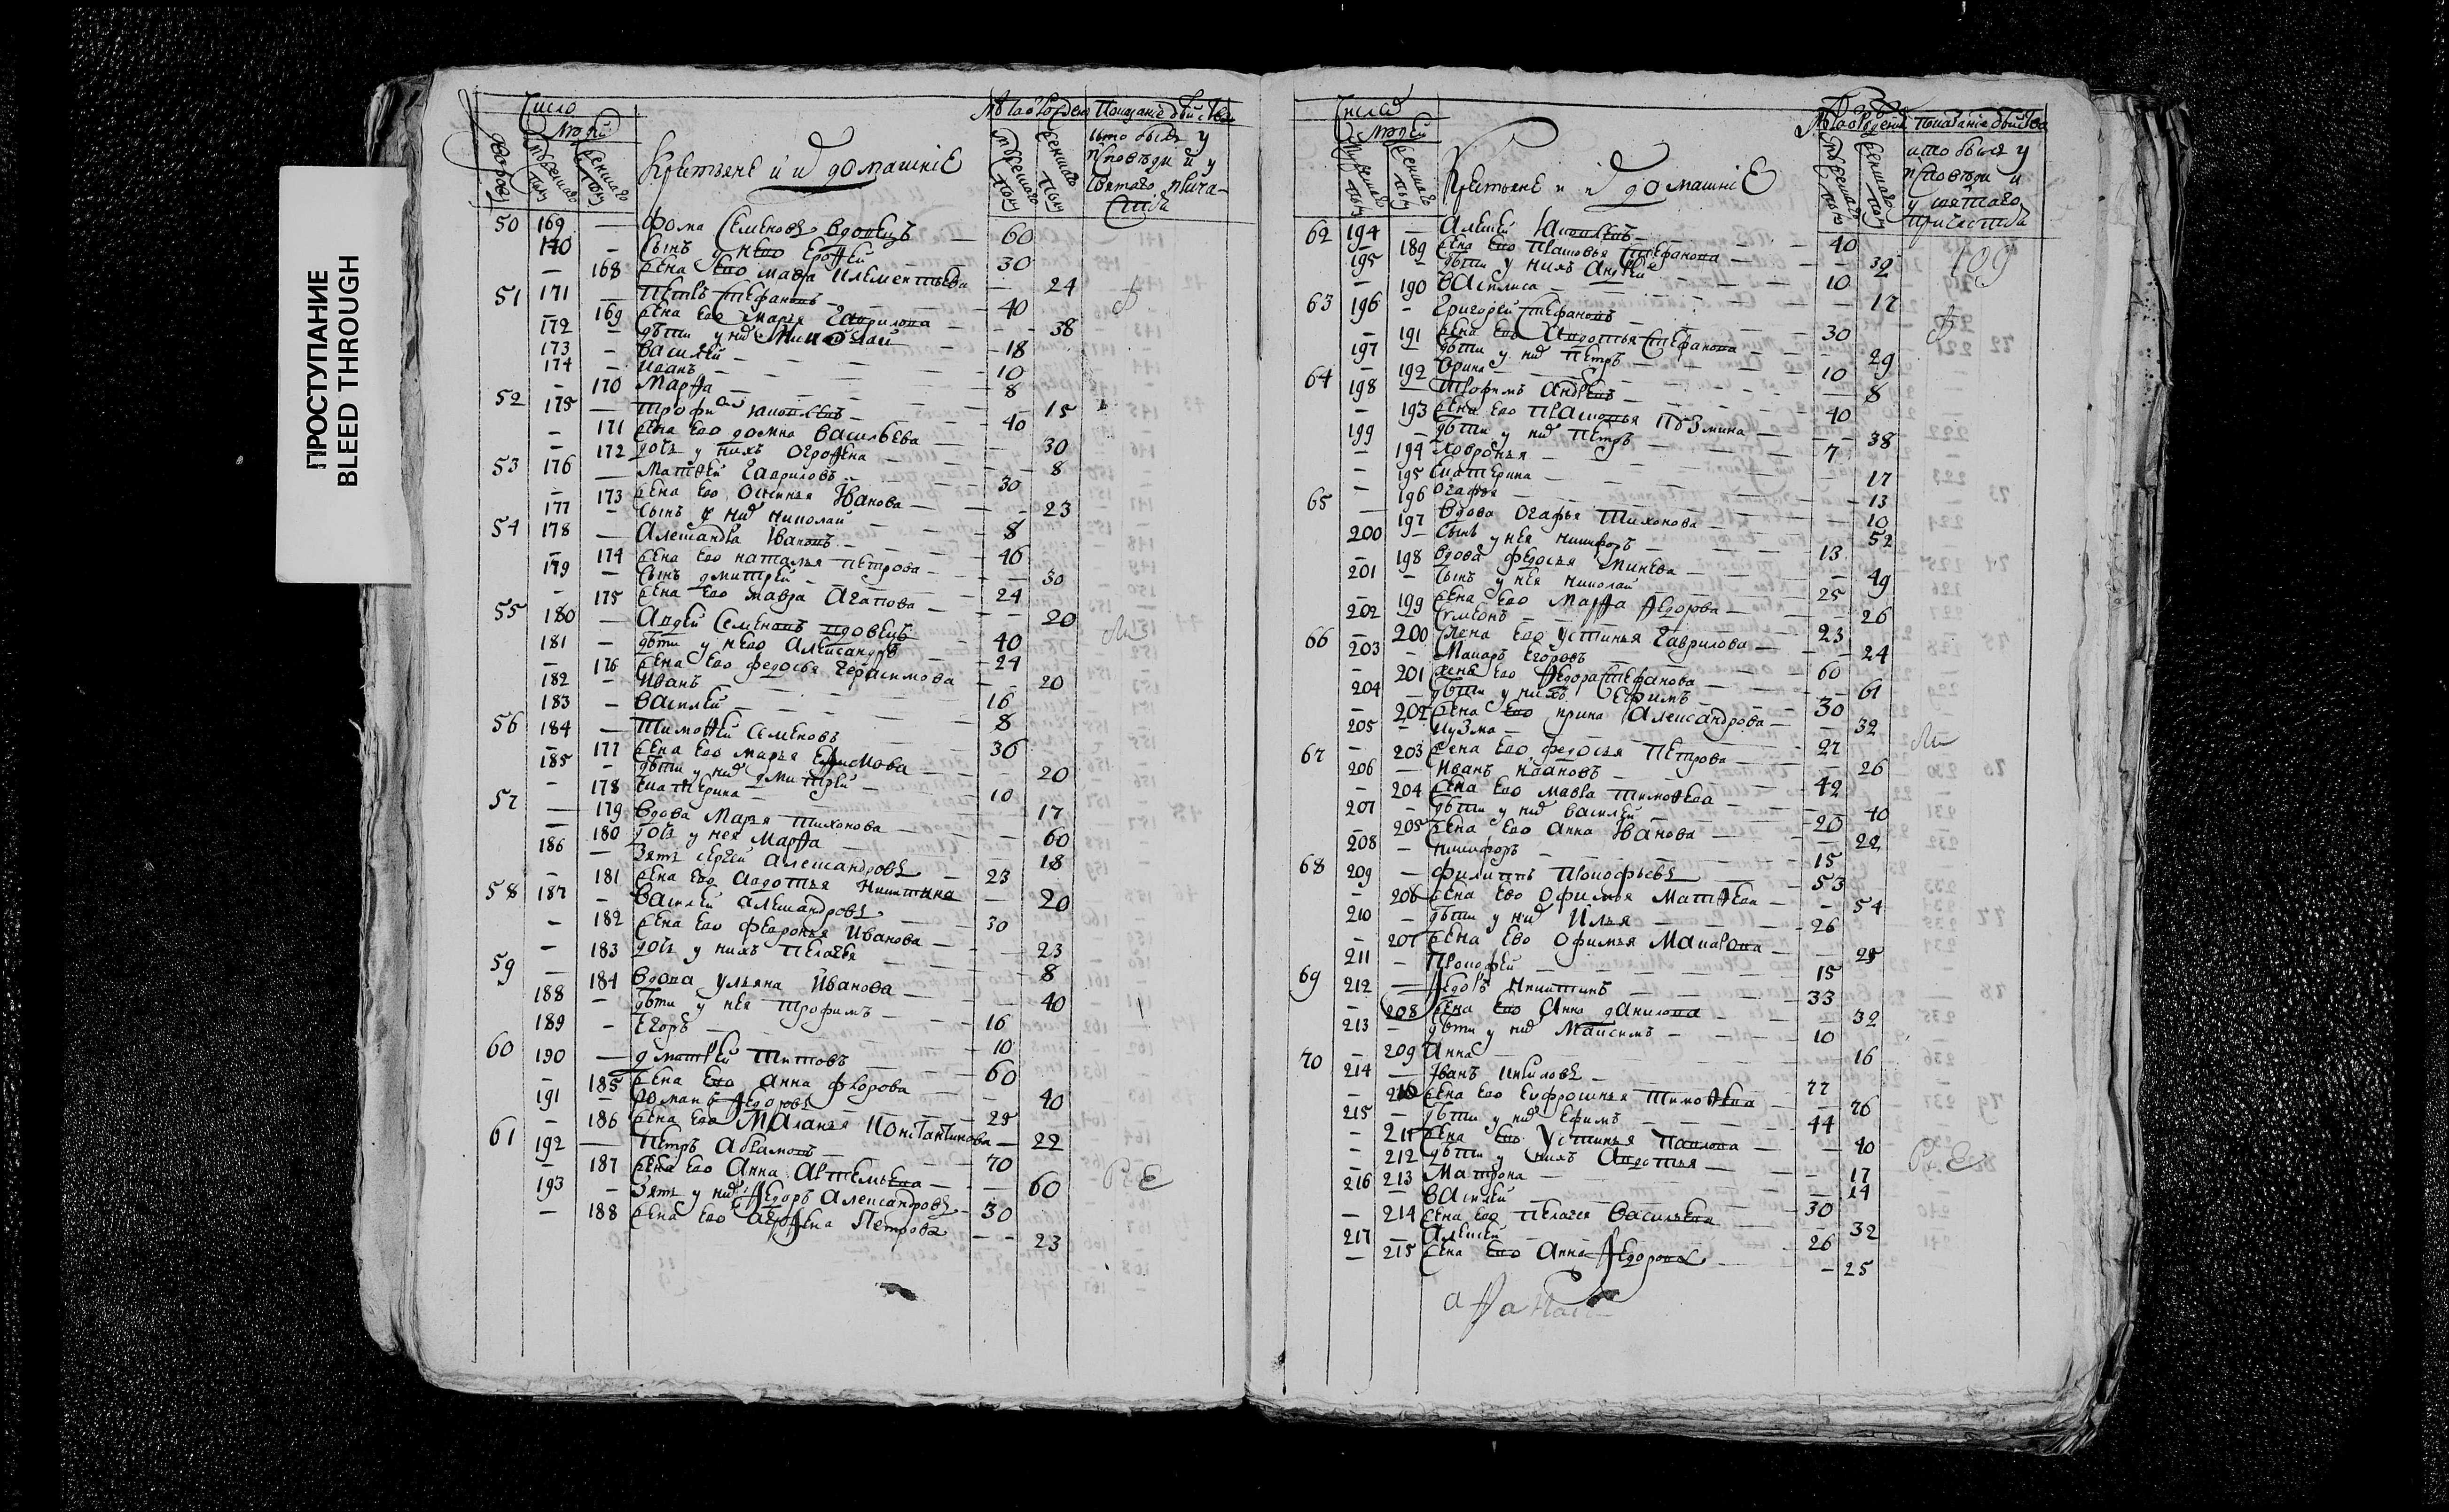 ПРОСТУПАНИЕ
BLEED THROUGH
Число
людей
Крестьяне и их домашние
50 169 — Фома Семеновъ вдовецъ — 60
170 — Сынъ у нево Ерофей — 30
— 168 Жена Ево мавра Клементьева — 24
51 171 — Петръ Стефановъ — 40
— 169 Жена Ево марья Гаврилова — 38
172 — дѣти у них Николай — 18
173 — Василей — 10
174 — Иванъ — 8
— 170 Марфа — 15
52 175 — Трофим Яковлевъ — 40
— 171 Жена Ево домна Васильева — 30
— 172 дочь у нихъ Огрофена — 8
53 176 — Матфей Гавриловъ — 30
— 173 Жена Ево Оксинья Иванова — 23
177 — Сынъ у них Николай — 8
54 178 — Александръ Ивановъ — 40
— 174 Жена Ево наталья Петрова — 30
179 — Сынъ дмитрей — 24
— 175 Жена Ево мавра Агапова — 20
55 180 — Андрей Семеновъ вдовецъ — 40
181 — дѣти у нево Александръ — 24
— 176 Жена Ево федосья Герасимова — 20
182 — Иванъ — 16
183 — Василей — 8
56 184 — Тимофей Семеновъ — 36
— 177 Жена Ево марья Ефимова — 20
185 — дѣти у них дмитрей — 10
— 178 Катерина — 17
57 — 179 Вдова Марья Тихонова — 60
— 180 дочь у нея Марфа — 18
186 — Зять сергей александровъ — 23
— 181 Жена Ево Авдотья Никитина — 20
58 187 — Василей александровъ — 30
— 182 Жена Ево Февронья Иванова — 23
— 183 дочь у нихъ Пелагея — 8
59 — 184 Вдова ульяна Иванова — 40
188 — дѣти у нея Трофимъ — 16
189 — Егоръ — 10
60 190 — дмитрей Титовъ — 60
— 185 Жена Ево Анна Федорова — 40
191 — Романъ Федоровъ — 25
— 186 Жена Ево Маланья Константинова — 22
61 192 — Петръ Абрамовъ — 70
— 187 Жена Ево Анна Артемьева — 60
193 — Зять у них Федоръ Александровъ — 30
— 188 Жена Ево Агрофена Петрова — 23
Число
людей
Крестьяне и их домашние
что были у
исповеди и
у святаго
причастия
109
62 194 — Алексей Яковлевъ — 40
— 189 Жена Ево Прасковья Стефанова — 32
195 — дѣти у нихъ Андрей — 10
— 190 Василиса — 17
63 196 — Григорей Стефановъ — 30
— 191 Жена Ево Авдотья Стефанова — 29
197 — дѣти у них Петръ — 10
— 192 Орина — 8
64 198 — Трофимъ Андреевъ — 40
— 193 Жена Ево Прасковья Кузмина — 38
199 — дѣти у них Петръ — 7
— 194 Ховронья — 17
— 195 Екатерина — 13
— 196 Огафья — 10
65 — 197 Вдова Огафья Тихонова — 52
200 — Сынъ у нея никифоръ — 13
— 198 Вдова федосья Минеева — 49
201 — Сынъ у нея николай — 25
— 199 Жена Ево Марфа Федорова — 26
202 — Симеонъ — 23
— 200 Жена Ево Устинья Гаврилова — 24
66 203 — Макаръ Егоровъ — 60
— 201 Жена Ево Федора Стефанова — 61
204 — дѣти у нихъ Ефимъ — 30
— 202 Жена Ево ирина Александрова — 32
205 — Кузма — 27
— 203 Жена Ево федосья Петрова — 26
67 206 — Иванъ Ивановъ — 42
— 204 Жена Ево мавра Тимофеева — 40
207 — дѣти у них василей — 20
— 205 Жена Ево Анна Иванова — 22
208 — никифоръ — 15
68 209 — Филиппъ Прокофьевъ — 53
— 206 Жена Ево Офимья Матфеева — 54
210 — дѣти у них Илья — 26
— 207 Жена Ево Офимья Макарова — 25
211 — Прокофей — 15
69 212 — Федоръ Никитинъ — 33
— 208 Жена Ево Анна данилова — 32
213 — дѣти у них Максимъ — 10
— 209 Анна — 16
70 214 — Иванъ Кириловъ — 77
— 210 Жена Ево Ефросинья Тимофеева — 76
215 — дѣти у них Ефимъ — 44
— 211 Жена Ево Устинья Павлова — 40
— 212 дѣти у нихъ Авдотья — 17
— 213 Матрона — 14
216 — Василей — 30
— 214 Жена Ево Пелагея Васильева — 32
217 — Алексей — 26
— 215 Жена Ево Анна Федорова — 25